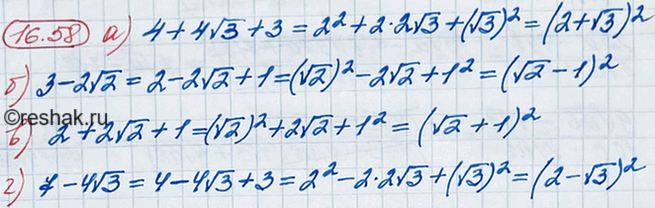 16.58 а) 4 + 4√3 + 3 = 2² + 2·2√3 + (√3)² = (2+√3)²
б) 3 - 2√2 = 2 - 2√2 + 1 = (√2)² - 2√2 + 1² = (√2 - 1)²
©reshak.ru
в) 2 + 2√2 + 1 = (√2)² + 2√2 + 1² = (√2 + 1)²
г) 7 - 4√3 = 4 - 4√3 + 3 = 2² - 2·2√3 + (√3)² = (2 - √3)²